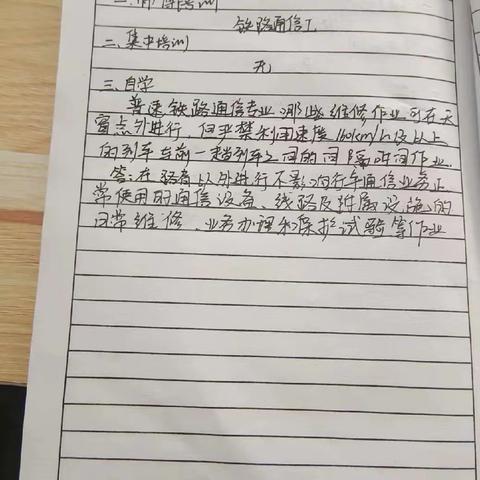 铁路通信工
二、集中培训
无
三、自学
普速铁路通信专业哪些维修作业可在天
窗点外进行，但严禁利用速度160km/h及以上
的列车与前一趟列车之间的间隔时间作业.
答:在路肩以外进行不影响行车通信业务正
常使用的通信设备、线路及附属设施的
日常维修、业务办理和保护试验等作业